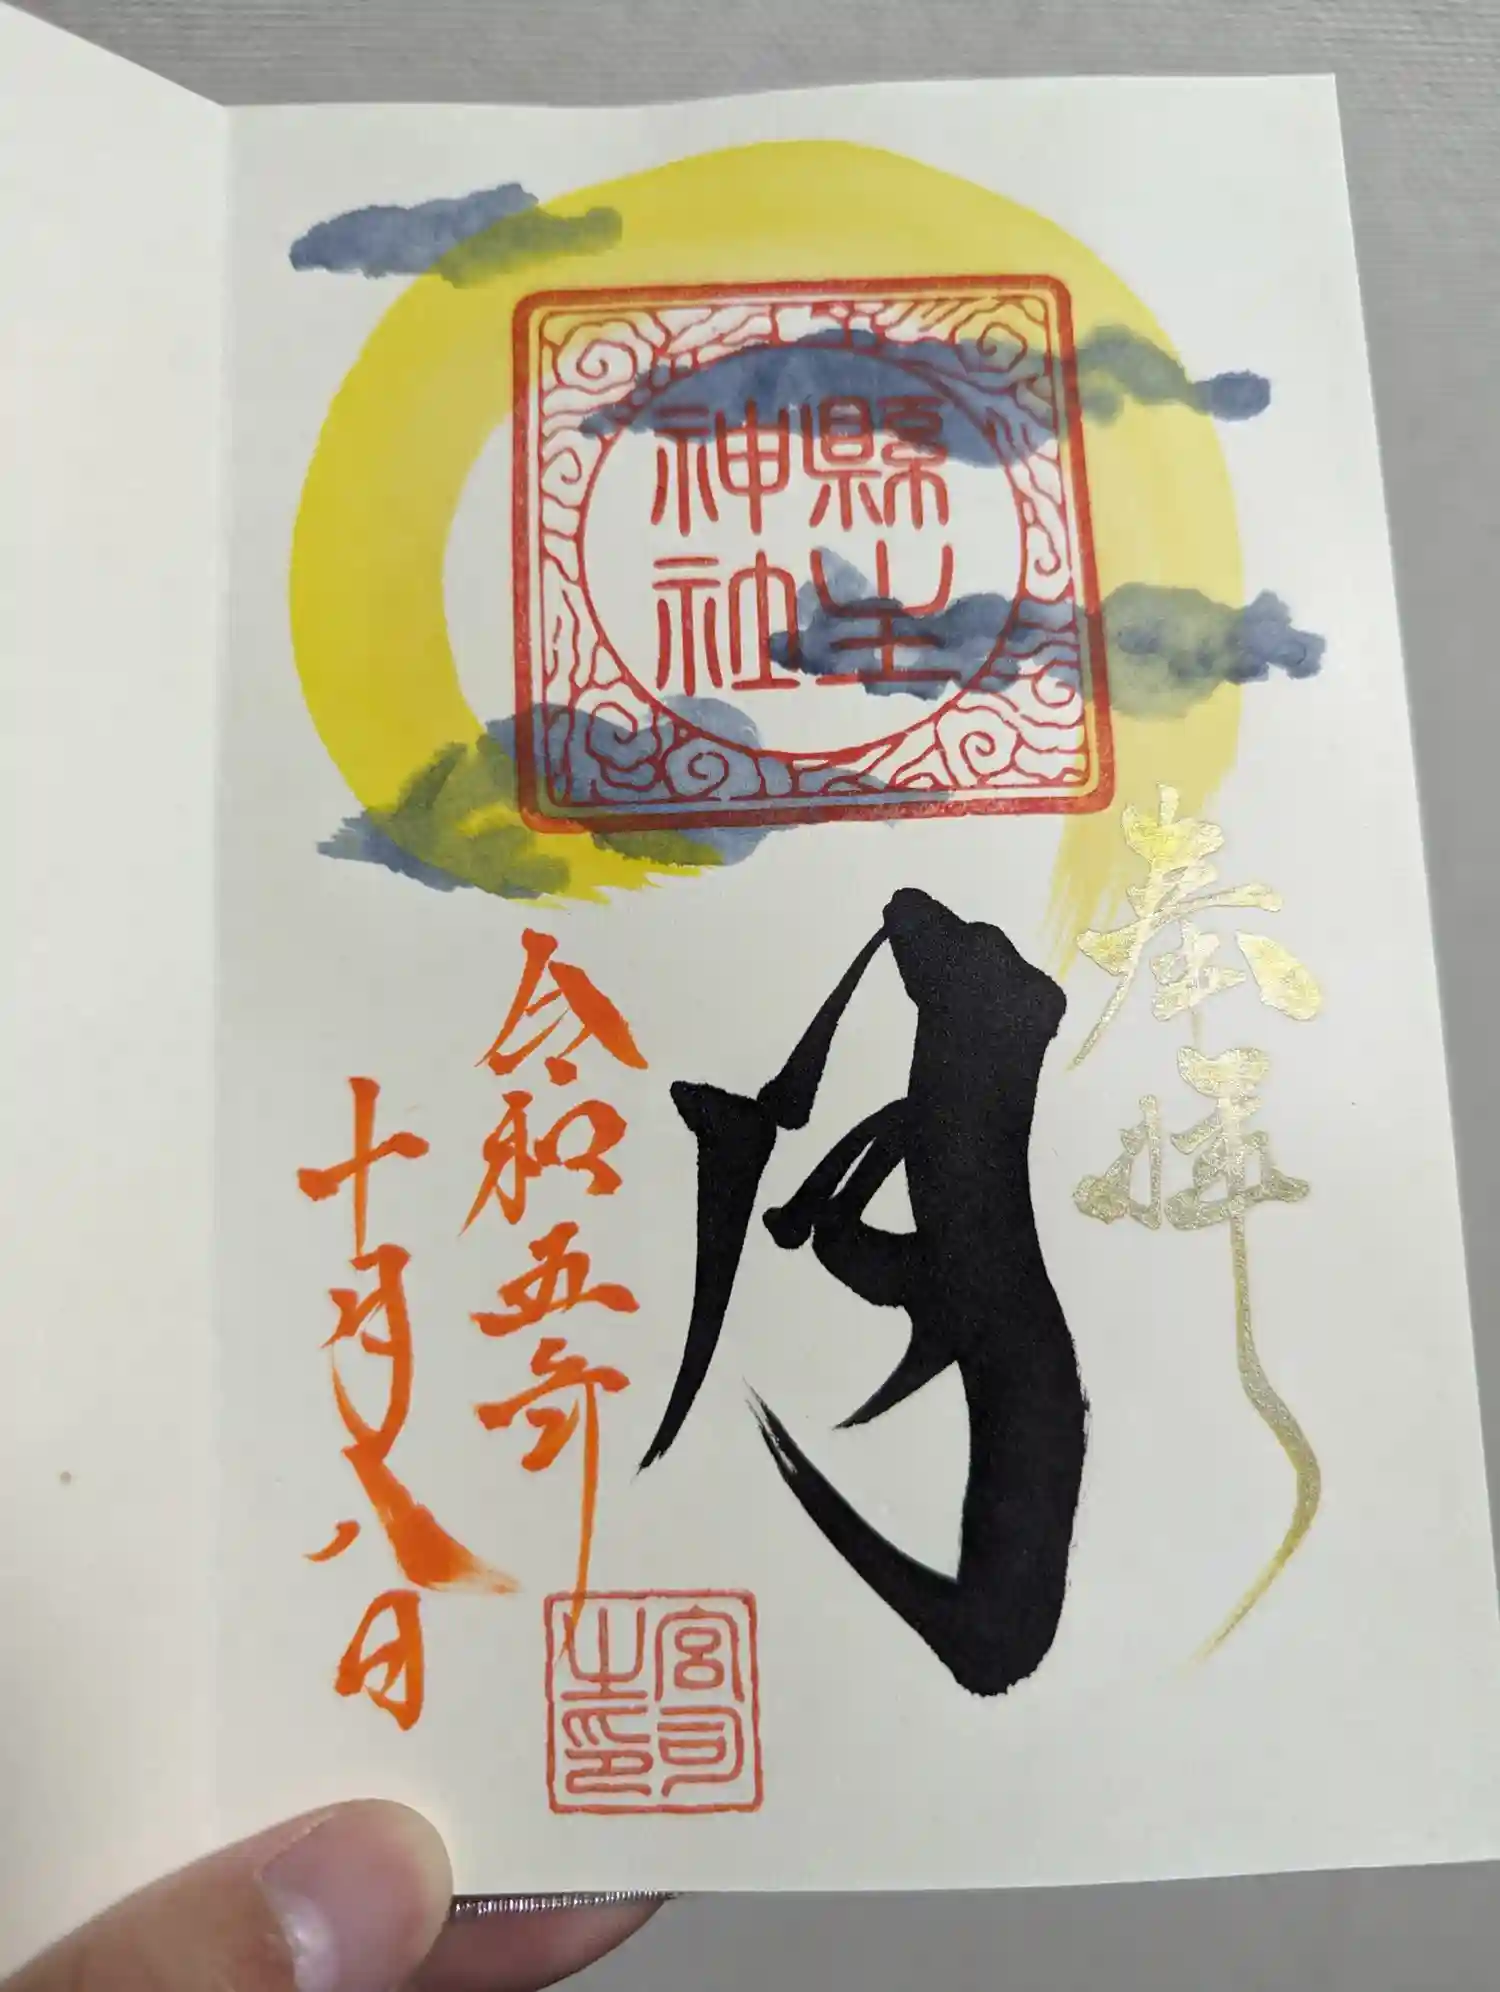 奉拝
縣主
神社
月
令和五年
十月八日
宮司
之印